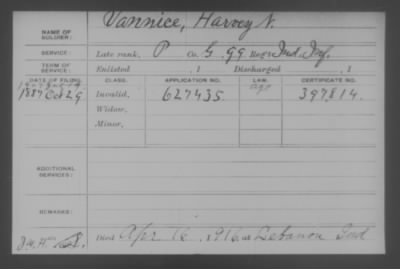 Vannice, Harvey N.
NAME OF SOLDIER:
SERVICE: Late rank, P Co. G, 99 Reg't Ind. Inf.
TERM OF SERVICE: Enlisted , 1 Discharged , 1
DATE OF FILING. CLASS. APPLICATION NO. LAW. CERTIFICATE NO.
1887 Oct 29 Invalid, 627435 397814.
Widow,
Minor,
ADDITIONAL SERVICES:
REMARKS:
Died Apr. 16, 1916, at Lebanon Ind